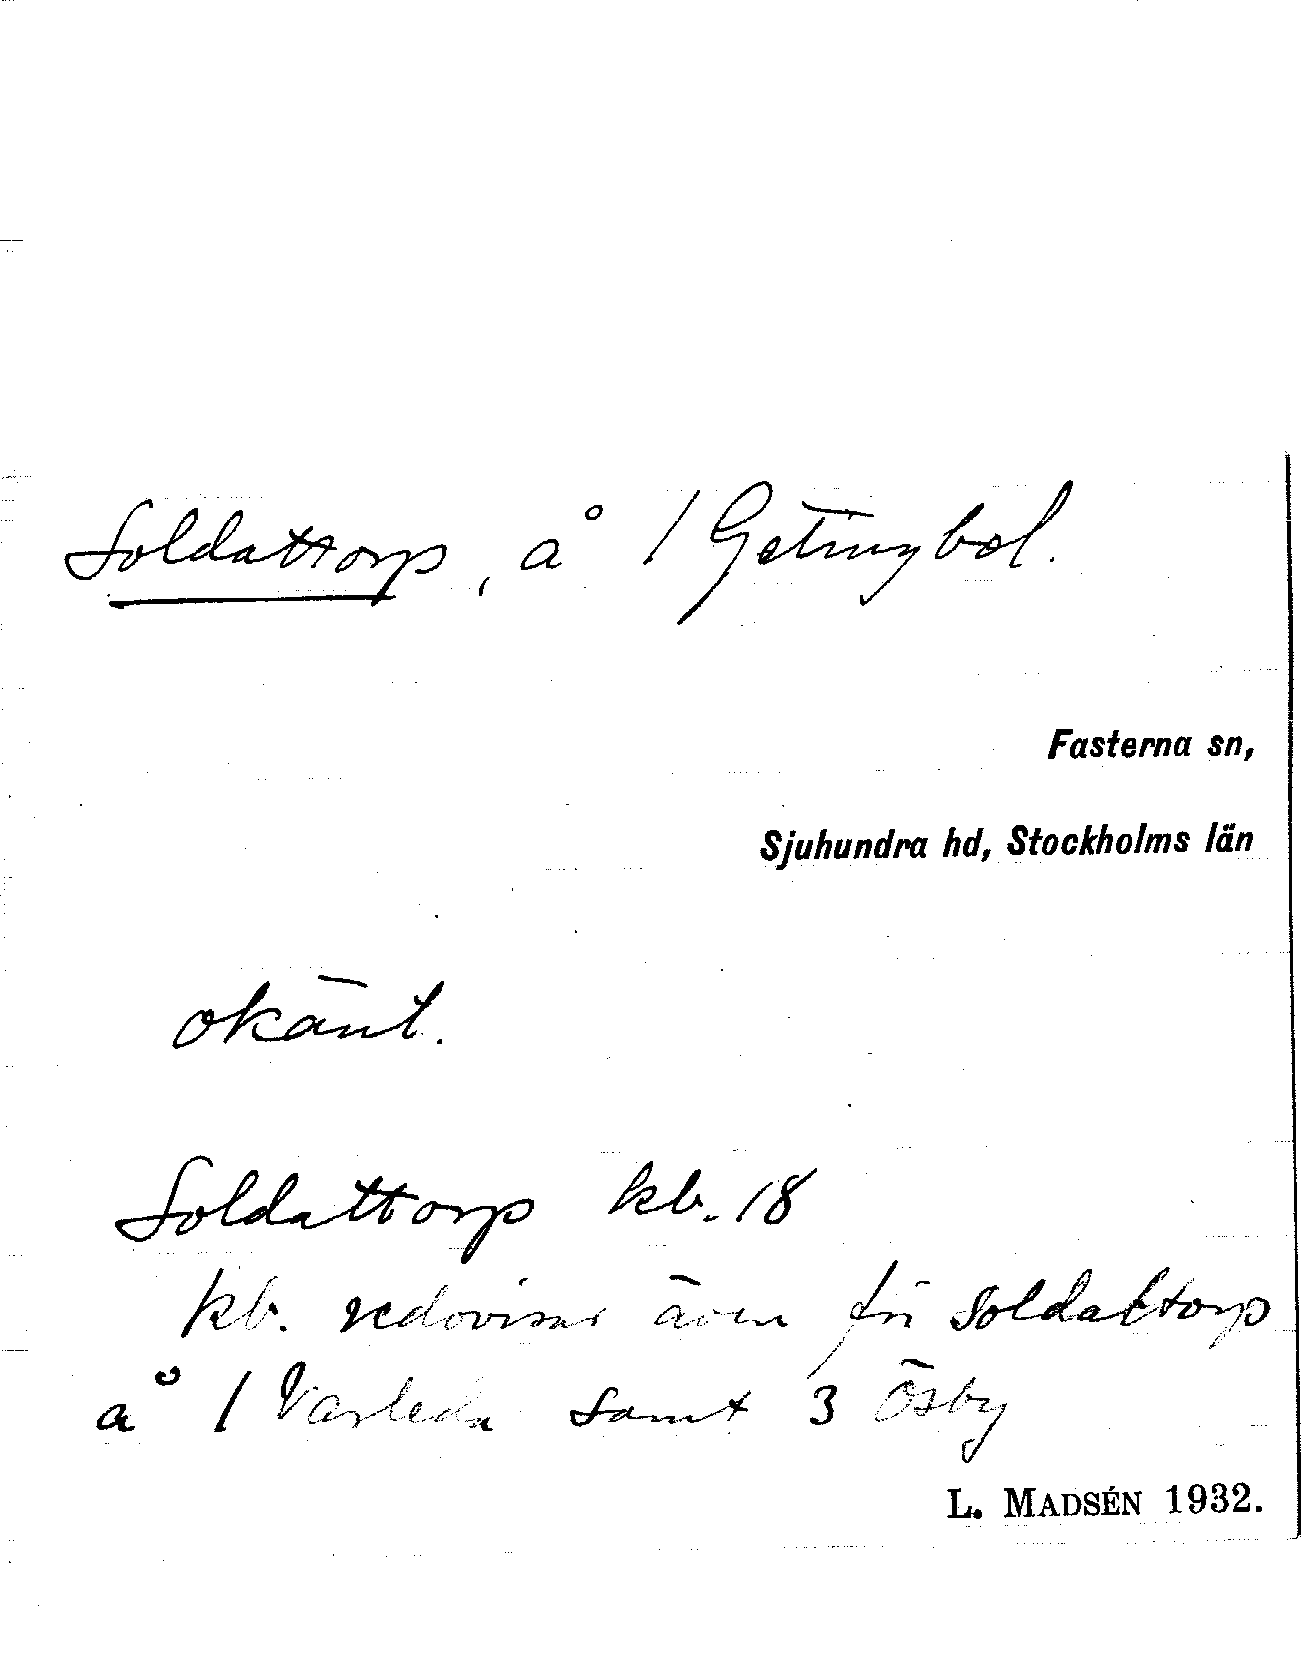 Soldattorp, å 1 Getingbol.
Fasterna sn,
Sjuhundra hd, Stockholms län
okänt.
Soldattorp kb. 18
kb. redovisar även för soldattorp
å 1 Varleda samt 3 Ösby
L. MADSÉN 1932.